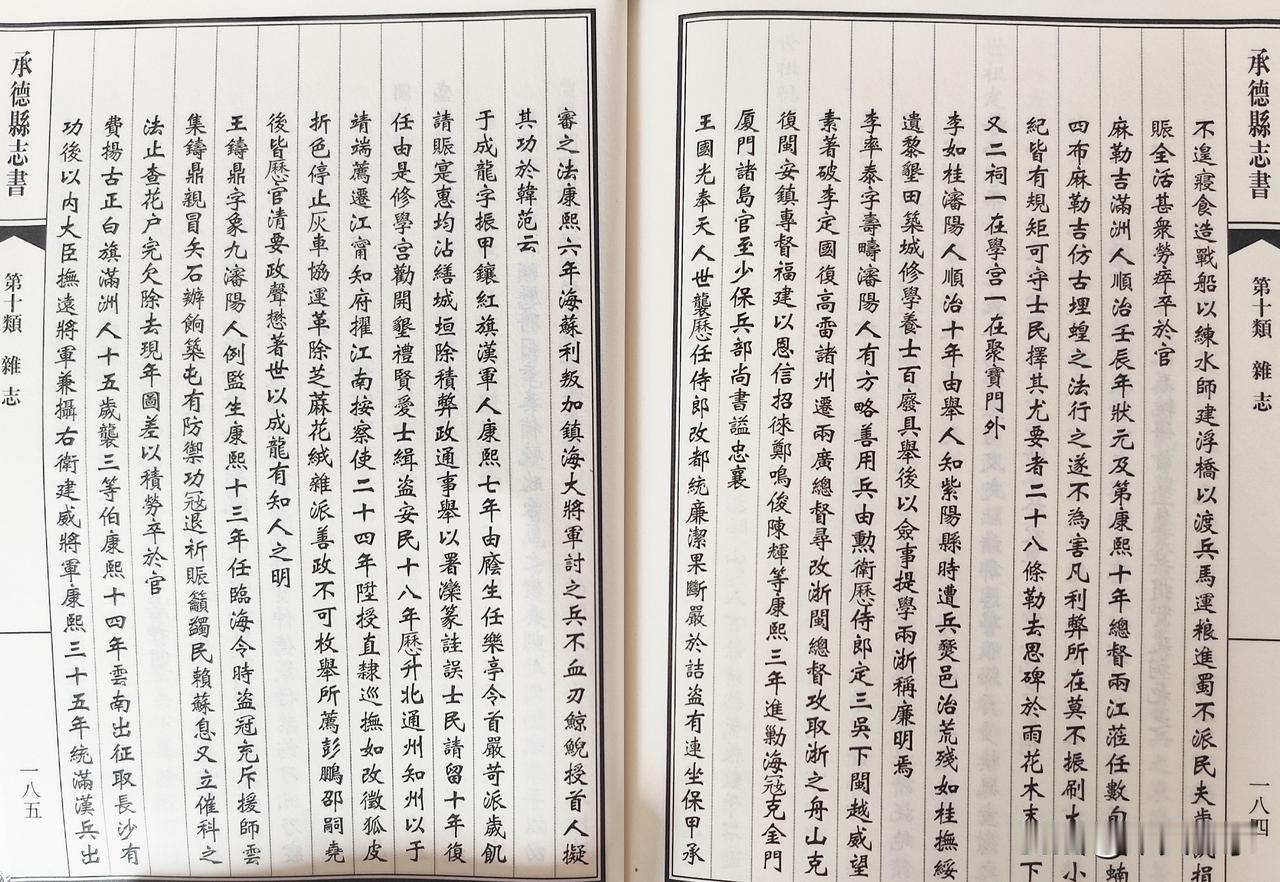 承德縣志書
第十類 雜志
一八四
不遑寢食造戰船以練水師建浮橋以渡兵馬運粮進蜀不派民夫歲捐
賑全活甚衆勞瘁卒於官
麻勒吉滿洲人順治壬辰年狀元及第康熙十年總督兩江蒞任數旬蝻
四布麻勒吉仿古埋蝗之法行之遂不為害凡利弊所在莫不振刷大小
紀皆有規矩可守士民擇其尤要者二十八條勒去思碑於雨花木末下
又二祠一在學宮一在聚寶門外
李如桂瀋陽人順治十年由舉人知紫陽縣時遭兵燹邑治荒殘如桂撫綏
遺黎墾田築城修學養士百廢具舉後以僉事提學兩浙稱廉明焉
李率泰字壽疇瀋陽人有方略善用兵由勳衛歷侍郎定三吳下閩越威望
素著破李定國復高雷諸州遷兩廣總督尋改浙閩總督攻取浙之舟山克
復閩安鎮專督福建以恩信招徠鄭鳴俊陳輝等康熙三年進勦海冦克金門
厦門諸島官至少保兵部尚書謚忠襄
王國光奉天人世襲歷任侍郎改都統廉潔果斷嚴於詰盜有連坐保甲承
審之法康熙六年海蘇利叛加鎮海大將軍討之兵不血刃鯨鯢授首人擬
其功於韓范云
于成龍字振甲鑲紅旗漢軍人康熙七年由廕生任樂亭令首嚴苛派歲飢
請賑寔惠均沾繕城垣除積弊政通事舉以署灤篆詿誤士民請留十年復
任由是修學宮勸開墾禮賢愛士緝盜安民十八年歷升北通州知州以于
靖端薦遷江甯知府擢江南按察使二十四年陞授直隸巡撫如改徵狐皮
折色停止灰車協運革除芝蔴花絨雜派善政不可枚舉所薦彭鵬邵嗣堯
後皆歷官清要政聲懋著世以成龍有知人之明
王鑄鼎字象九瀋陽人例監生康熙十三年任臨海令時盜冦充斥援師雲
集鑄鼎親冒矢石辦餉築屯有防禦功冦退祈賑籲蠲民賴蘇息又立催科之
法止查花户完欠除去現年圖差以積勞卒於官
費揚古正白旗滿洲人十五歲襲三等伯康熙十四年雲南出征取長沙有
功後以內大臣撫遠將軍兼攝右衛建威將軍康熙三十五年統滿漢兵出
承德縣志書
第十類 雜志
一八五